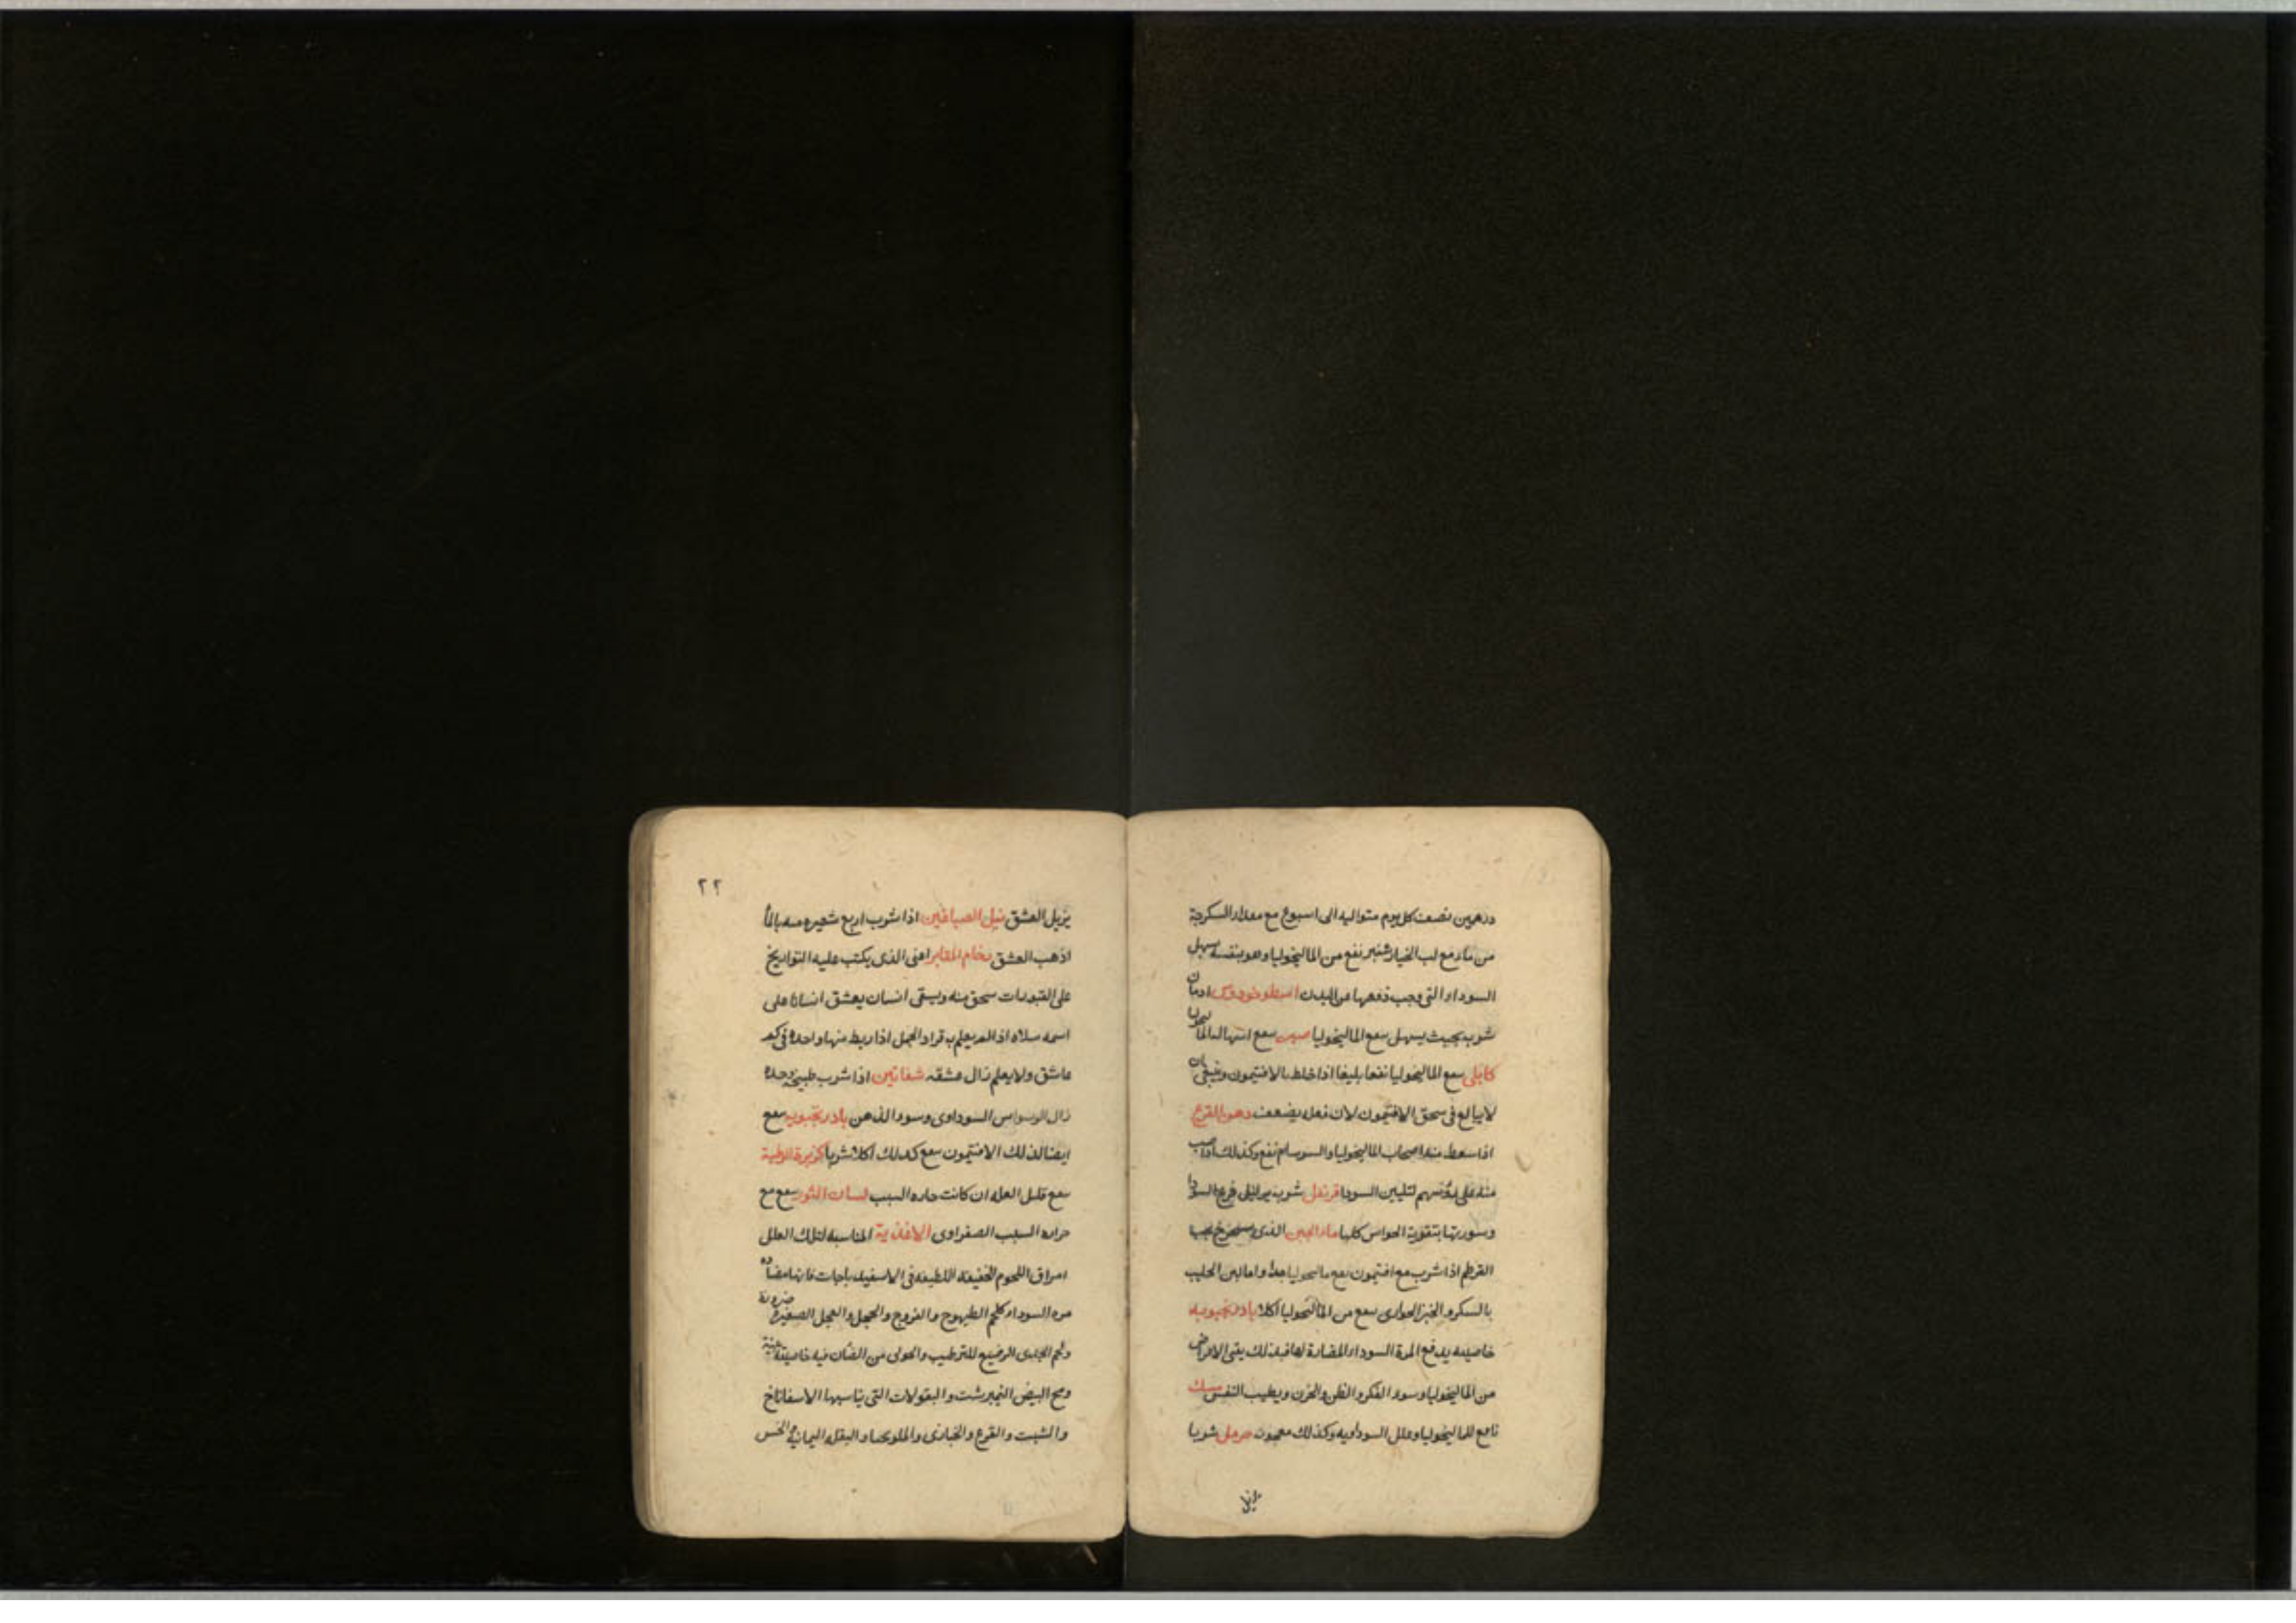 درهمين نصف كل يوم متواليه الى اسبوع مع مقدار السكرجة
من ماء مع لب الخيار شنبر نفع من الماليخوليا وهو بنفسه يسهل
السوداء التى وجب دفعها من البدن اسطوخودوس ادمان
شربه بحيث يسهل ينفع الماليخوليا ينفع الماليخوليا
كابلى ينفع الماليخوليا نفعا بليغا اذا خلط بالافتيمون وينبغى ان
لا يبالغ فى سحق الافتيمون لان فعله يضعف دهن القرع
اذا سعط منه اصحاب الماليخوليا والسرسام نفع وكذلك اذا صب
منه على رؤسهم لتليين السودا قرنفل شربه يزيل السودا
وسورتها بتقوية الحواس كلها ماء الجبن الذى يستخرج بحب
القرطم اذا شرب مع افتيمون نفع ماليخوليا جدا واما لبن الحليب
بالسكر والخبز الحوارى ينفع من الماليخوليا اكلا بادرنجبويه
خاصيته يدفع المرة السوداء المضارة لها فبذلك يبقى الامراض
من الماليخوليا وسوء الفكر والظن والحزن ويطيب النفس مسك
نافع للماليخوليا وعلل السوداويه وكذلك معجون شربا
يزيل
٢٢
يزيل العشق نيل الصباغين اذا شرب اربع شعيره منه بالماء
اذهب العشق رخام المقابر اعنى الذى يكتب عليه التواريخ
على القبور ان سحق منه ويسقى انسان يعشق انسانا على
اسمه سلاه اذا لم يعلم به قراد الجمل اذا ربط منها واحدة فى كم
عاشق ولا يعلم زال عشقه شفانين اذا شرب طبيخه وحده
زال الوسواس السوداوى وسوء الذهن بادرنجبويه ينفع
ايضا لذلك الافتيمون ينفع كذلك اكلا وشربا كزبرة الرطبة
ينفع قليل العله ان كانت حاره السبب لسان الثور ينفع مع
حراره السبب الصفراوى الاغذية المناسبة لتلك العلل
امراق اللحوم الخفيفه اللطيفه فى الاسفيدباجات فانها مضاده
مره السوداء كلحم الطيهوج والفروج والحجل والعجل الصغير
ولحم الجدى الرضيع للترطيب والحولى من الضأن فيه خاصية
ومح البيض النيمبرشت والبقولات التى يناسبها الاسفاناخ
والشبت والقرع والخبازى والملوخيا والبقله اليمانية والخس